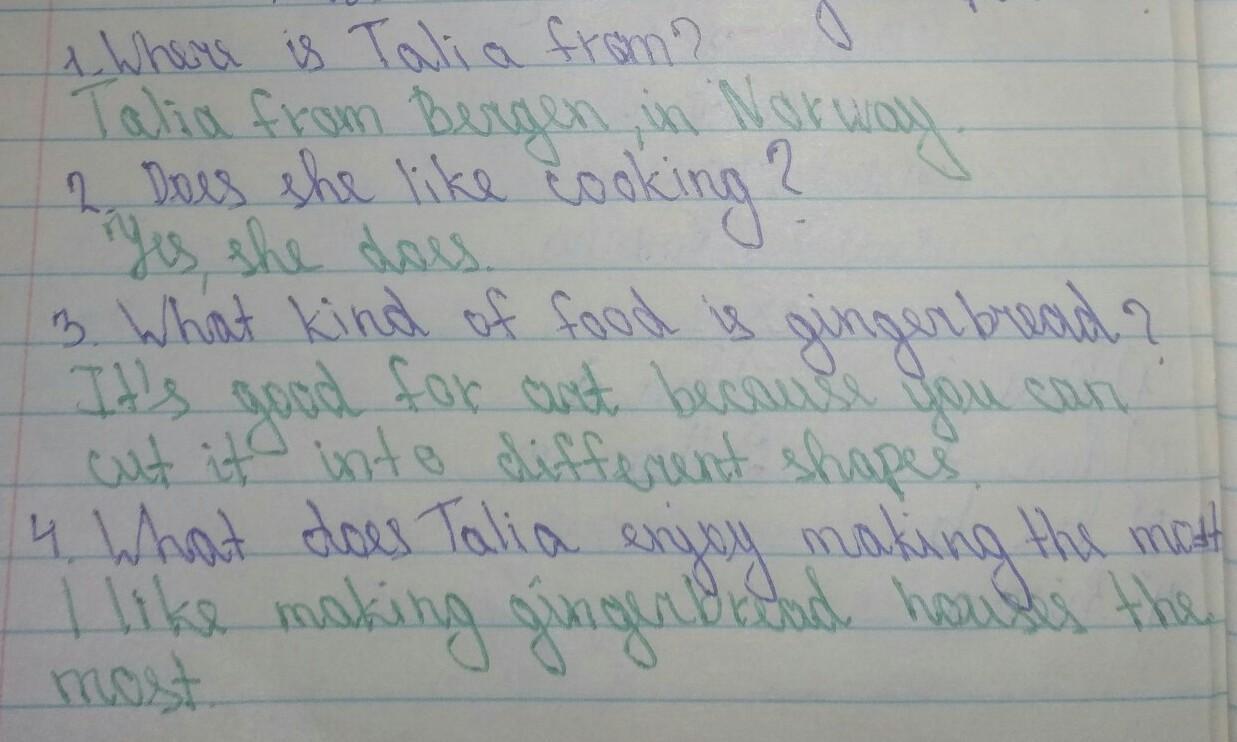 1. Where is Talia from?
Talia from Bergen, in Norway.
2. Does she like cooking?
Yes, she does.
3. What kind of food is gingerbread?
It's good for art because you can
cut it into different shapes.
4. What does Talia enjoy making the most
I like making gingerbread houses the
most.